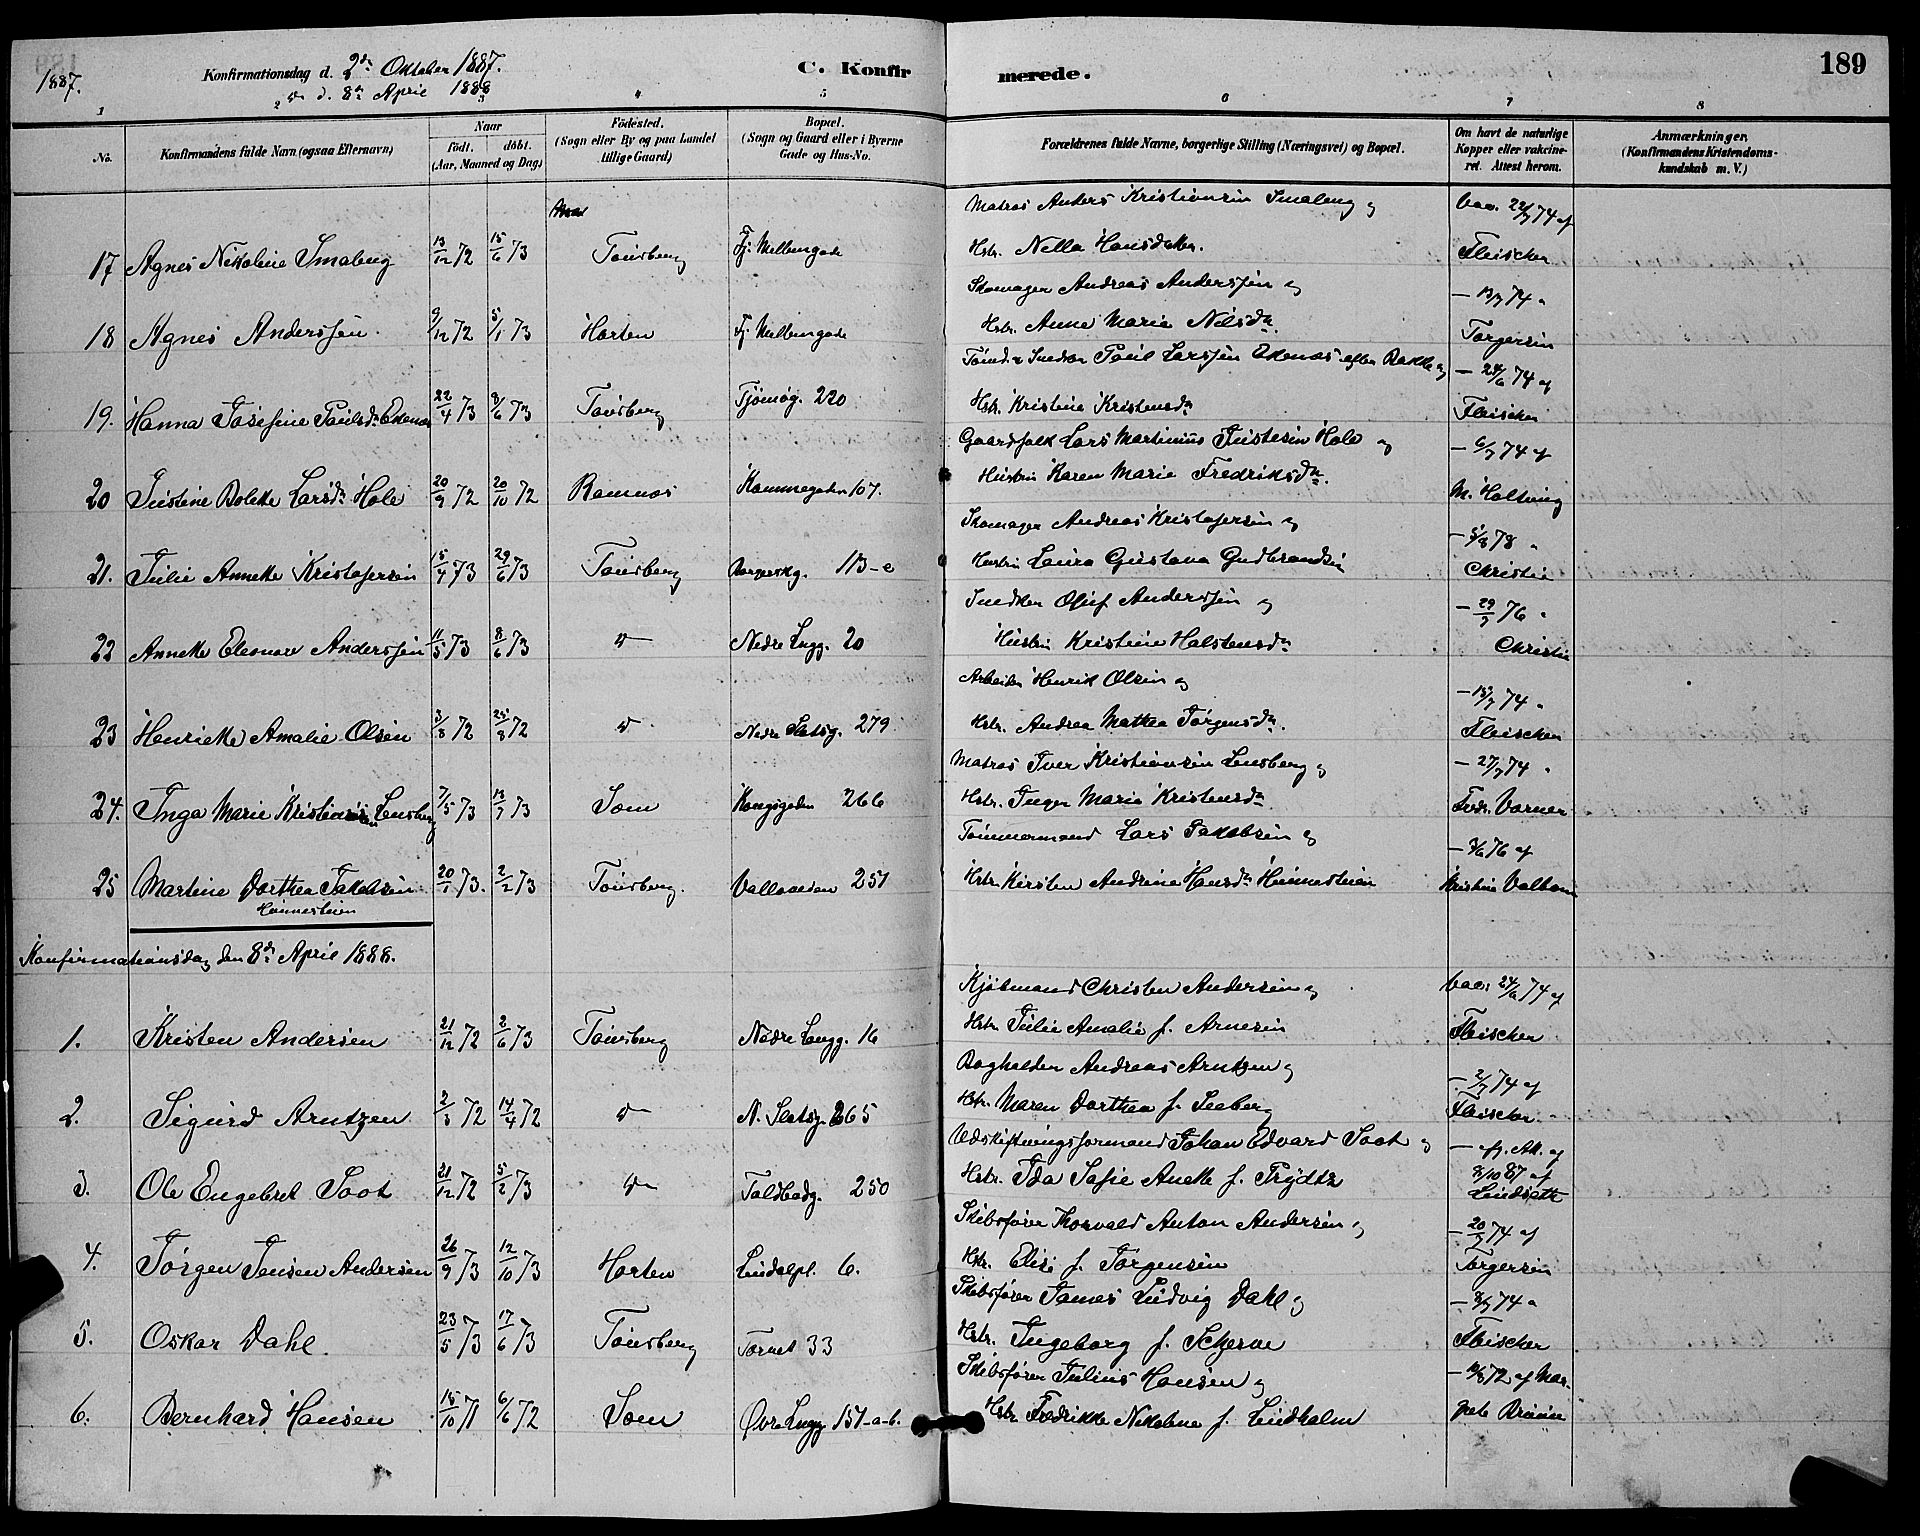 189
1887.
Konfirmationsdag d. 2den Oktober 1887.
C. Konfirmerede.
d. 8de April 1888
1 2 3 4 5 6 7 8
No.
Konfirmandens fulde Navn (ogsaa Efternavn)
Naar
födt. döbt.
(Aar, Maaned og Dag)
Födested.
(Sogn eller By og paa Landet tillige Gaard)
Bopæl.
(Sogn og Gaard eller i Byerne Gade og Hus-No.
Forældrenes fulde Navne, borgerlige Stilling (Næringsvei) og Bopæl.
Om havt de naturlige Kopper eller vakcineret. Attest herom.
Anmærkninger.
(Konfirmandens Kristendomskundskab m. V.)
Matros Anders Kristiansen Smaberg og vac. 22/7 74 af
17 Agnes Nikoline Smaberg 13/12 72 15/6 73 Tønsberg Fj. Mellemgade Hstr. Nella Hansdatter. Fleischer
Skomager Andreas Anderssen og — 13/7 74 "
18 Agnes Anderssen. 9/12 72 5/1 73 Horten Fj. Mellemgade Hstr. Anne Marie Nilsdr. Torgersen
Snedker Paul Larssen Ekenæs og — 24/6 74 af
19. Hanna Josefine Paulsdr. Ekenæs 22/4 73 8/6 73 Tønsberg Tjømøg. 220 Hstr. Kristine Kristensdr Fleischer
Gaardfolk Lars Martinius Justesen Hole og — 6/7 74 af
20 Justine Bolette Larsdr. Hole 20/9 72 20/10 72 Ramnæs Kammegaden 107. Hustru Karen Marie Fredriksdr. M. Holtung
Skomager Andreas Kristofersen og — 5/8 78 "
21. Julie Annette Kristofersen 15/4 73 29/6 73 Tønsberg 113-e Hustru Laura Gustava Gudbrandsen Christie
Snedker Oluf Anderssen og — 29/7 76 "
22 Annette Eleonore Anderssen 11/5 73 8/6 73 do Nedre Langg. 20 Hustru Kristine Halstensdr Christie
Arbeider Henrik Olsen og — 13/7 74 "
23 Henriette Amalie Olsen 3/8 72 25/8 72 do Nedre Slotsg. 279 Hstr. Andrea Mathea Jørgensdr. Fleischer
Matros Iver Kristiansen Lensberg og — 27/7 74 "
24. Inga Marie Kristiansen Lensberg 7/5 73 13/7 73 Sem Kongsgaden 266 Hstr. Inger Marie Kristensdr Fredr. Varner
Tømmermand Lars Jakobsen og — 7/6 76 af
25 Martine Dorthea Jakobsen 20/1 73. 2/2 73 Tønsberg. Vallaveien 251 Hstr. Kirsten Andrine Hansdr. Hunnesteien Kristine Valbom
Hunnesteien
Konfirmationsdag den 8de April 1888.
Kjøbmand Christen Andersen og vac. 24/6 74 af
1. Kristen Andersen 21/12 72 2/6 73 Tønsberg Nedre Langg. 16 Hstr. Julie Amalie f. Arnesen Fleischer
Bogholder Andreas Arntzen og — 2/7 74 af
2. Sigurd Arntzen 2/3 72 14/4 72 do N. Slotsg. 265 Hstr. Maren Dorthea f. Seeberg Fleischer
Udskiftningsformand Johan Edvard Soot og — af
3. Ole Engebret Soot 21/12 72 5/2 73 do Toldbodg. 250 Hstr. Ida Sofie Anette f. Prydtz 8/10 87 af Lindseth
Skibsfører Thorvald Anton Andersen og — 20/7 74 af
4. Jørgen Jensen Andersen 26/9 73 12/10 73 Horten Lindalpl. 6. Hstr. Elise f. Jørgensen Torgersen
Skibsfører James Ludvig Dahl og — 8/7 74 "
5. Oskar Dahl. 23/5 73 17/6 73 Tønsberg Torvet 33 Hstr. Ingeborg f. Scherve Fleischer
Skibsfører Julius Hansen og — 72 af Mar-
6. Bernhard Hansen 15/10 71 6/6 72 Sem Øvre Langg 151-a-b. Hstr. Fredrikke Nikoline f. Lindholm grete Bruun